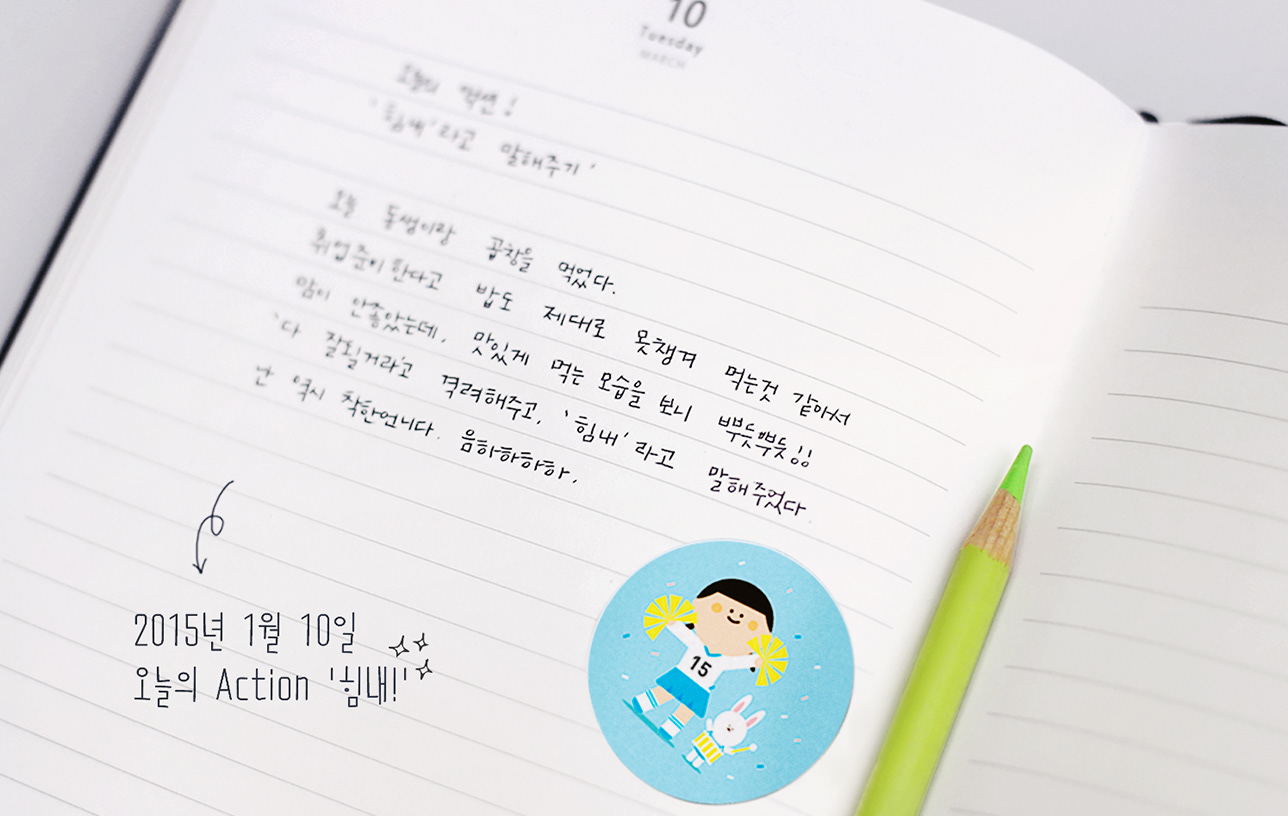 10
Tuesday
MARCH
오늘의 액션!
'힘내'라고 말해주기'
오늘 동생이랑 곱창을 먹었다.
취업준비 한다고 밥도 제대로 못챙겨 먹는것 같아서
맘이 안좋았는데, 맛있게 먹는 모습을 보니 뿌듯뿌듯!!
'다 잘될거라고 격려해주고, '힘내'라고 말해주었다
난 역시 착한언니다. 음하하하하.
2015년 1월 10일
오늘의 Action '힘내!'
15